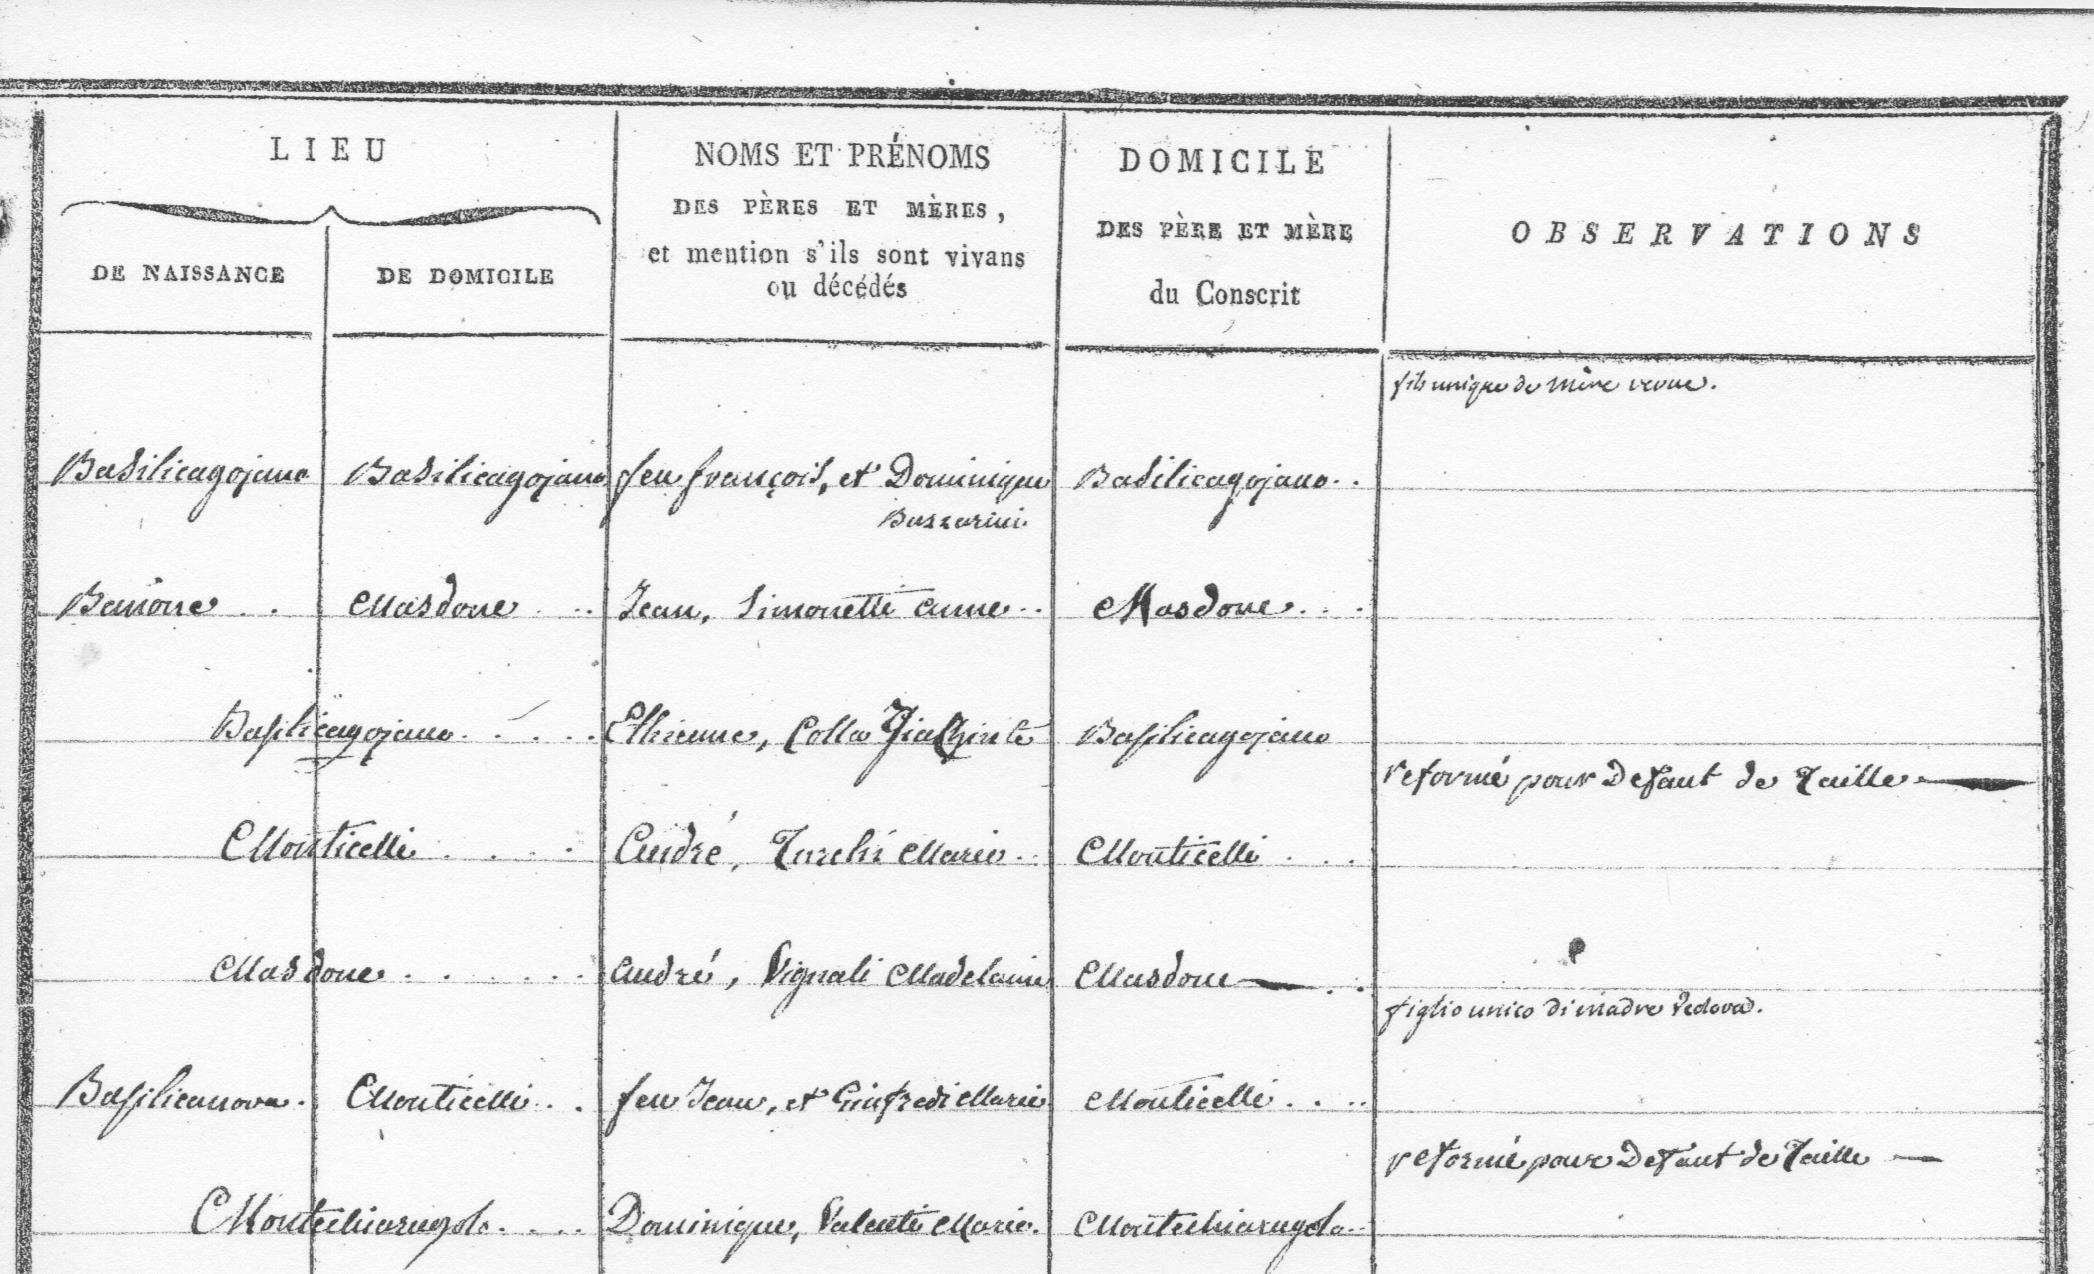 LIEU
DE NAISSANCE
DE DOMICILE
NOMS ET PRÉNOMS
DES PÈRES ET MÈRES,
et mention s'ils sont vivans
ou décédés
DOMICILE
DES PÈRE ET MÈRE
du Conscrit
OBSERVATIONS
fils unique de mère veuve.
Basilicagojano Basilicagojano feu françois, et Dominique Basilicagojano..
Bazzarini
Masdone ... Jean, Simonetti anne.. Masdone...
Basilicagojano..... Ethienne, Colla Basilicagojano
reformé pour Defaut de Taille
Monticelli ... André, Turchi Marie.. Monticelli ...
Masdone ...... André, Vignali Madelaine Masdone ..
figlio unico di madre Vedova.
Basilicanova. Monticelli.. feu Jean, et Marie Monticelli....
reformé pour Defaut de Taille —
Montechiarugolo.... Dominique, Valenti Marie. Montechiarugolo..